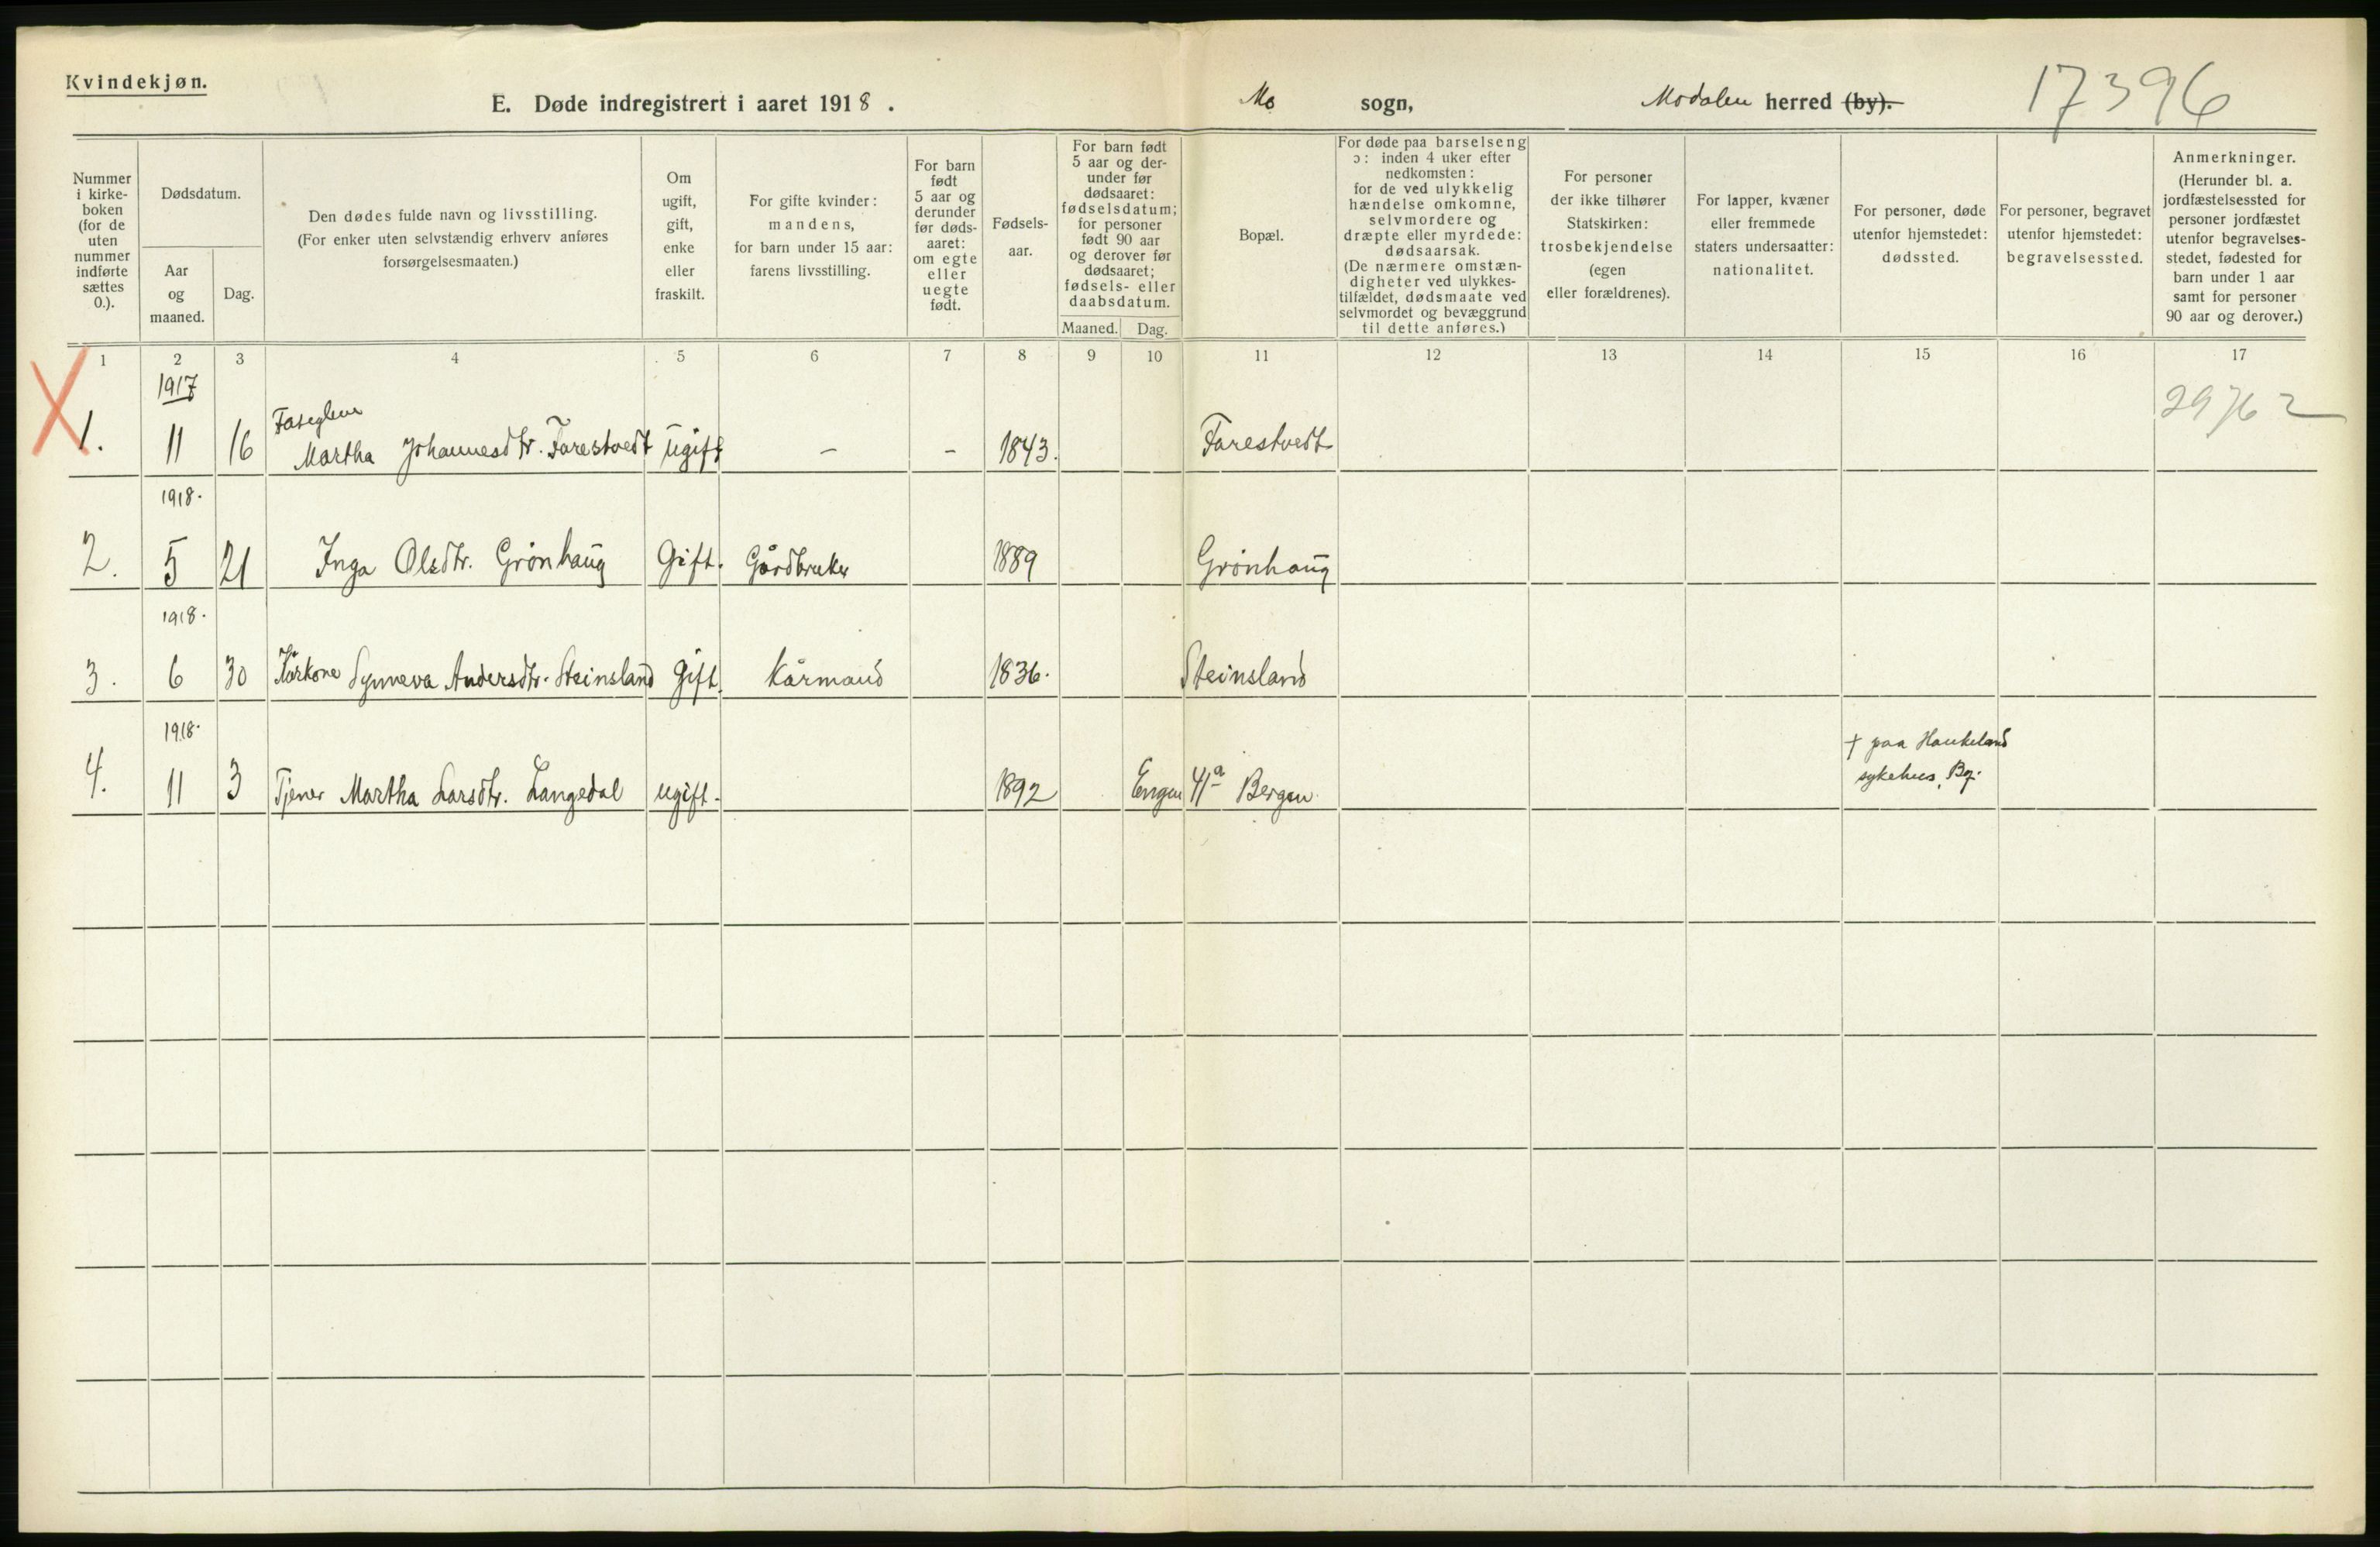 Kvindekjøn.
E. Døde indregistrert i aaret 1918.
Mo sogn,
Modalen herred (by).
17396
Nummer i kirke-boken (for de uten nummer indførte sættes 0.).
Dødsdatum.
Aar og maaned.
Dag.
Den dødes fulde navn og livsstilling.
(For enker uten selvstændig erhverv anføres
forsørgelsesmaaten.)
Om ugift, gift, enke eller fraskilt.
For gifte kvinder: mandens, for barn under 15 aar: farens livsstilling.
For barn født 5 aar og derunder før døds-aaret: om egte eller uegte født.
Fødsels-aar.
For barn født 5 aar og der-under før dødsaaret: fødselsdatum; for personer født 90 aar og derover før dødsaaret; fødsels- eller daabsdatum.
Maaned. Dag.
Bopæl.
For døde paa barselseng ɔ: inden 4 uker efter nedkomsten: for de ved ulykkelig hændelse omkomne, selvmordere og dræpte eller myrdede: dødsaarsak. (De nærmere omstæn-digheter ved ulykkes-tilfældet, dødsmaate ved selvmordet og bevæggrund til dette anføres.)
For personer der ikke tilhører Statskirken: trosbekjendelse (egen eller forældrenes).
For lapper, kvæner eller fremmede staters undersaatter: nationalitet.
For personer, døde utenfor hjemstedet: dødssted.
For personer, begravet utenfor hjemstedet: begravelsessted.
Anmerkninger. (Herunder bl. a. jordfæstelsessted for personer jordfæstet utenfor begravelses-stedet, fødested for barn under 1 aar samt for personer 90 aar og derover.)
1 2 3 4 5 6 7 8 9 10 11 12 13 14 15 16 17
1917
29762
1. 11 16 Martha Johannesdtr. Farestvedt ugift – – 1843. Farestvedt
1918.
2. 5 21 Inga Olsdtr. Grönhaug Gift. Gårdbruker 1889 Grönhaug
1918.
3. 6 30 Kårkone Synneva Andersdtr. Steinsland gift. Kårmand 1836. Steinsland
1918.
4. 11 3 Tjener Martha Larsdtr. Langedal ugift. 1892 Engen 41a Bergen
† paa Haukeland
sykehus, Bg.